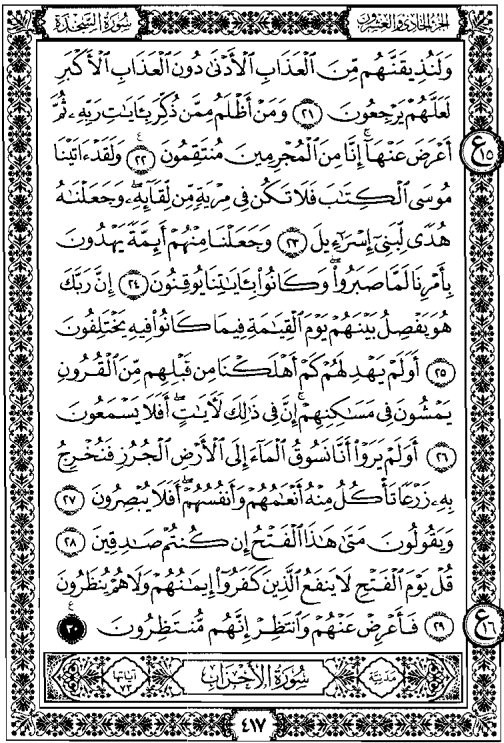 سُورَةُ السَّجْدَةِ الجُزْءُ الحَادِي وَالعِشْرُونَ
وَلَنُذِيقَنَّهُم مِّنَ ٱلْعَذَابِ ٱلْأَدْنَىٰ دُونَ ٱلْعَذَابِ ٱلْأَكْبَرِ
لَعَلَّهُمْ يَرْجِعُونَ ٢١ وَمَنْ أَظْلَمُ مِمَّن ذُكِّرَ بِـَٔايَٰتِ رَبِّهِۦ ثُمَّ
أَعْرَضَ عَنْهَآ ۚ إِنَّا مِنَ ٱلْمُجْرِمِينَ مُنتَقِمُونَ ٢٢ وَلَقَدْ ءَاتَيْنَا
ع ١٥
مُوسَى ٱلْكِتَٰبَ فَلَا تَكُن فِى مِرْيَةٍ مِّن لِّقَآئِهِۦ ۖ وَجَعَلْنَٰهُ
هُدًى لِّبَنِىٓ إِسْرَٰٓءِيلَ ٢٣ وَجَعَلْنَا مِنْهُمْ أَئِمَّةً يَهْدُونَ
بِأَمْرِنَا لَمَّا صَبَرُوا۟ ۖ وَكَانُوا۟ بِـَٔايَٰتِنَا يُوقِنُونَ ٢٤ إِنَّ رَبَّكَ
هُوَ يَفْصِلُ بَيْنَهُمْ يَوْمَ ٱلْقِيَٰمَةِ فِيمَا كَانُوا۟ فِيهِ يَخْتَلِفُونَ
٢٥ أَوَلَمْ يَهْدِ لَهُمْ كَمْ أَهْلَكْنَا مِن قَبْلِهِم مِّنَ ٱلْقُرُونِ
يَمْشُونَ فِى مَسَٰكِنِهِمْ ۚ إِنَّ فِى ذَٰلِكَ لَـَٔايَٰتٍ ۖ أَفَلَا يَسْمَعُونَ
٢٦ أَوَلَمْ يَرَوْا۟ أَنَّا نَسُوقُ ٱلْمَآءَ إِلَى ٱلْأَرْضِ ٱلْجُرُزِ فَنُخْرِجُ
بِهِۦ زَرْعًا تَأْكُلُ مِنْهُ أَنْعَٰمُهُمْ وَأَنفُسُهُمْ ۖ أَفَلَا يُبْصِرُونَ ٢٧
وَيَقُولُونَ مَتَىٰ هَٰذَا ٱلْفَتْحُ إِن كُنتُمْ صَٰدِقِينَ ٢٨
قُلْ يَوْمَ ٱلْفَتْحِ لَا يَنفَعُ ٱلَّذِينَ كَفَرُوٓا۟ إِيمَٰنُهُمْ وَلَا هُمْ يُنظَرُونَ
٢٩ فَأَعْرِضْ عَنْهُمْ وَٱنتَظِرْ إِنَّهُم مُّنتَظِرُونَ ٣٠
ع ١٦
مَدَنِيَّة سُورَةُ الأَحْزَابِ آياتها ٧٣
٤١٧